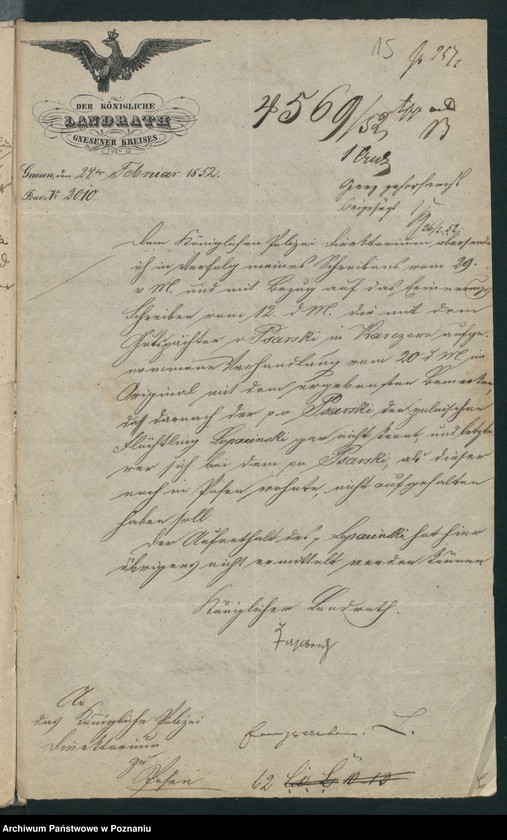 15
DER KÖNIGLICHE
LANDRATH
GNESENER KREISES
4569
Gnesen, den 24ten Februar 1852.
Jour. No 2010.
26/2. 52.
Dem Königlichen Polizei Direktorium übersende
ich in Verfolg meines Schreibens vom 29.
v M. und mit Bezug auf das Erinnerungs
Schreiben vom 12. d M. die mit dem
Gutspächter v Psarski in aufge-
nommene Verhandlung vom 20 d M im
Original mit dem ergebensten Bemerken,
daß darnach der p. v Psarski, den polnischen
Flüchtling Lopacinski gar nicht kennt, und letzte-
rer sich bei dem p. v Psarski, als dieser
noch in Posen wohnte, nicht aufgehalten
haben soll
Der Aufenthalt des p Lopacinski hat hier
übrigens nicht ermittelt werden können
Königlicher Landrath.
An
das Königliche Polizei
Direktorium
zu
Posen
62
Archiwum Państwowe w Poznaniu